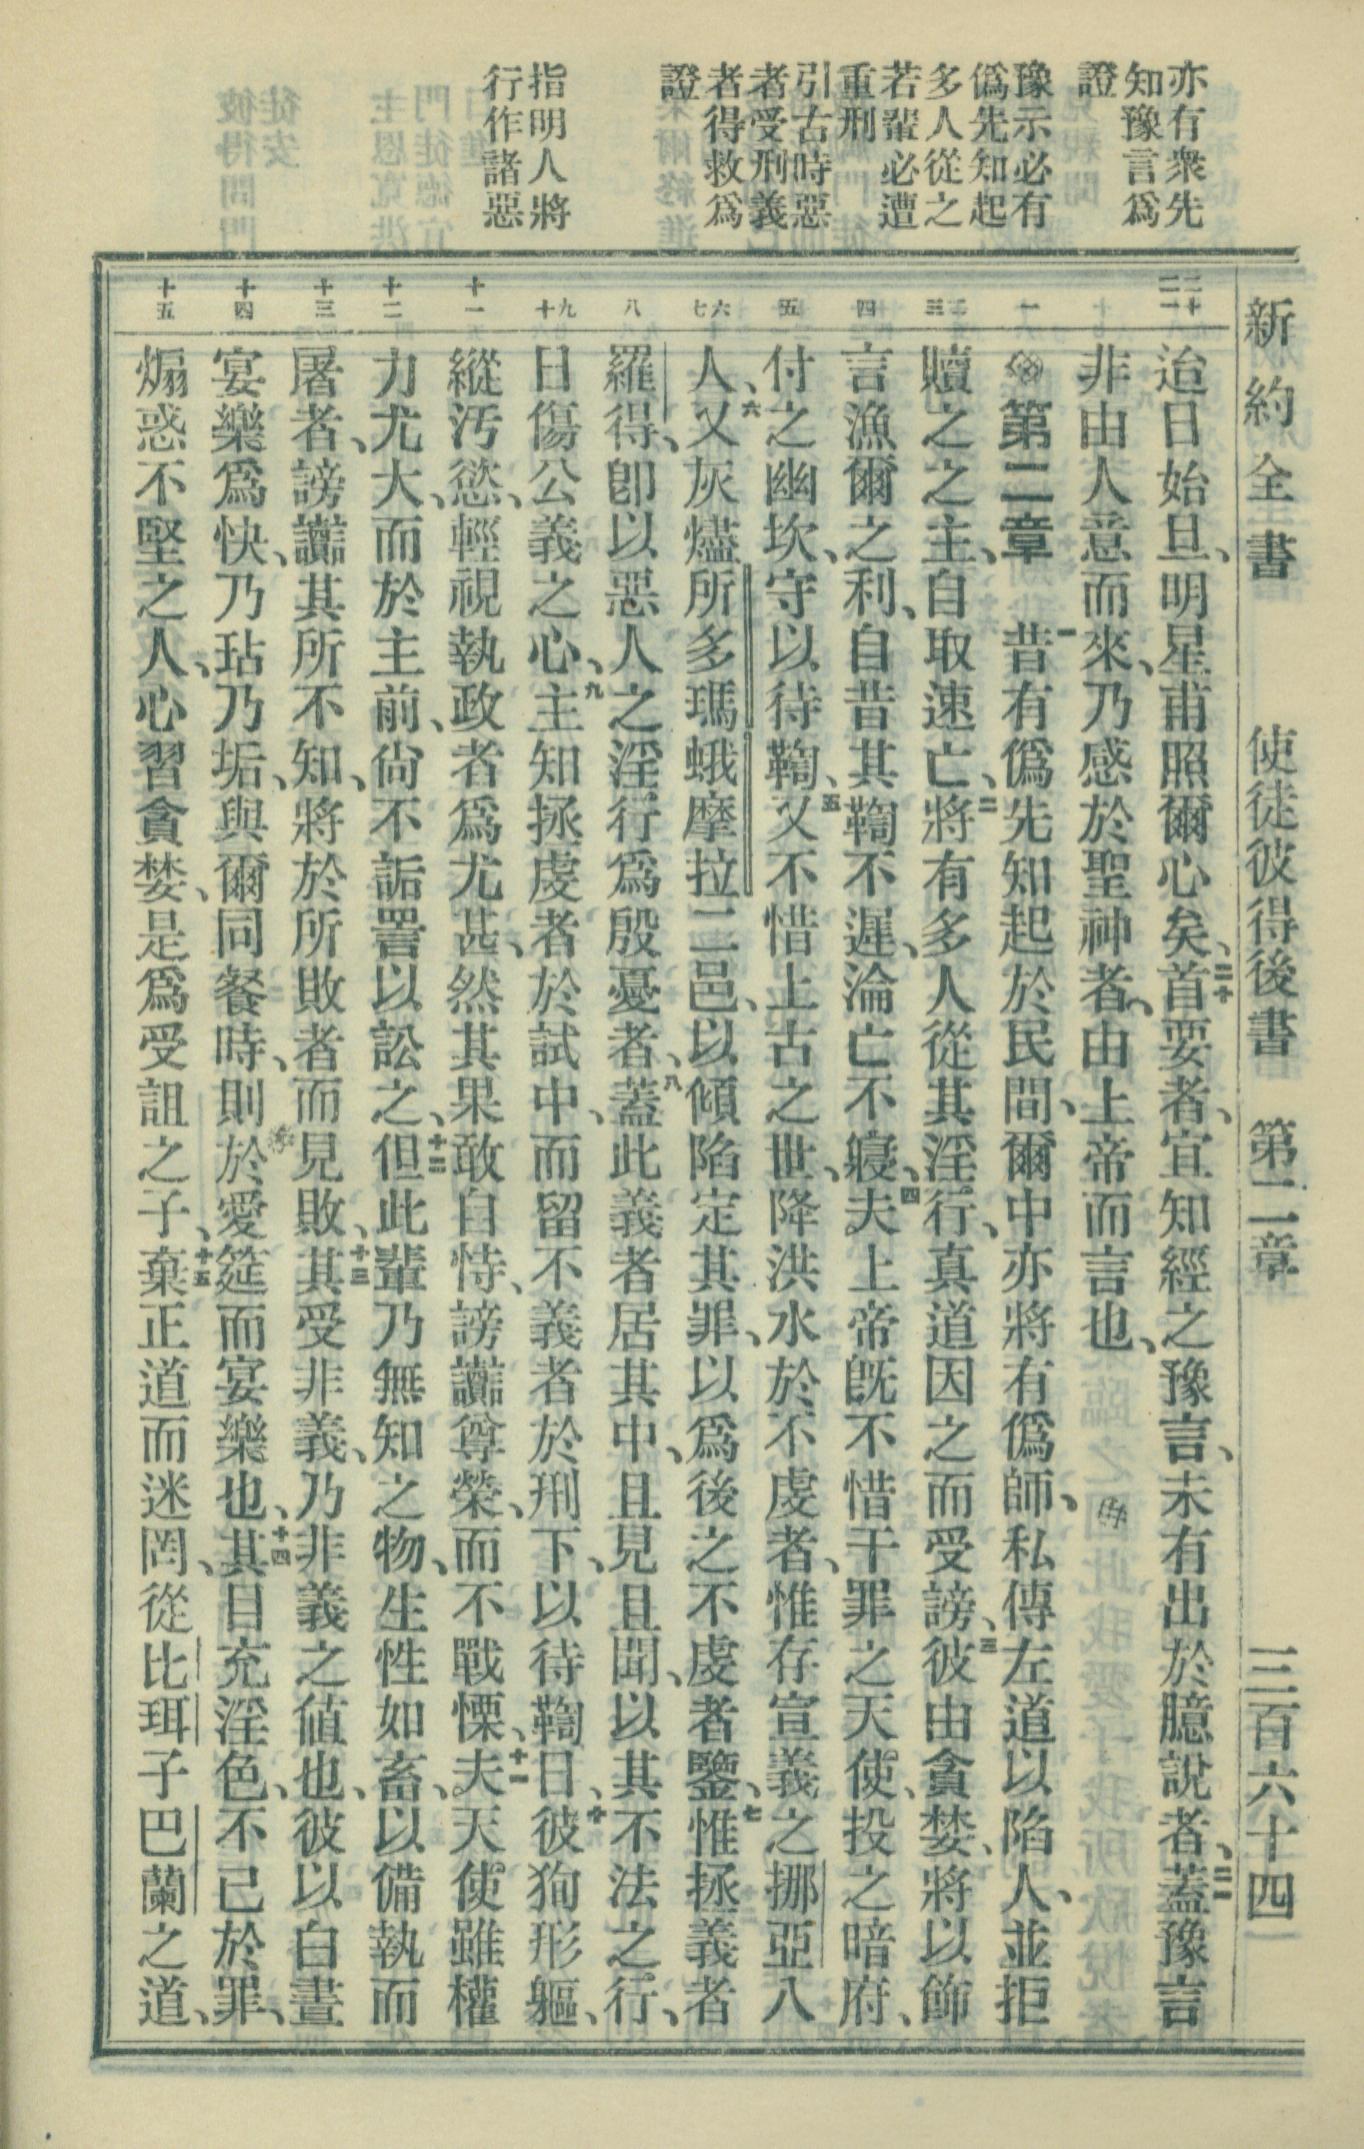 新約全書　使徒彼得後書　第二章　三百六十四
亦有衆先
知豫言爲
證
豫示必有
僞先知起
多人從之
若輩必遭
重刑
引古時惡
者受刑義
者得救爲
證
指明人將
行作諸惡
二十
二一
一
二
三
四
五
六
七
八
九
十
十一
十二
十三
十四
十五
迨日始旦、明星甫照爾心矣、二十首要者、宜知經之豫言、未有出於臆說者、二一蓋豫言
非由人意而來、乃感於聖神者、由上帝而言也、
第二章　一昔有僞先知起於民間、爾中亦將有僞師、私傳左道以陷人、並拒
贖之之主、自取速亡、二將有多人從其淫行、真道因之而受謗、三彼由貪婪、將以飾
言漁爾之利、自昔其鞫不遲、淪亡不寢、四夫上帝旣不惜干罪之天使、投之暗府、
付之幽坎、守以待鞫、五又不惜上古之世、降洪水於不虔者、惟存宣義之挪亞八
人、六又灰燼所多瑪蛾摩拉二邑、以傾陷定其罪、以爲後之不虔者鑒、七惟拯義者
羅得、卽以惡人之淫行爲殷憂者、八蓋此義者居其中、且見且聞、以其不法之行、
日傷公義之心、九主知拯虔者於試中、而留不義者於刑下、以待鞫日、十彼狥形軀、
縱汚慾、輕視執政者爲尤甚、然其果敢自恃、謗讟尊榮、而不戰慄、十一夫天使雖權
力尤大、而於主前、尙不詬詈以訟之、十二但此輩乃無知之物、生性如畜、以備執而
屠者、謗讟其所不知、將於所敗者而見敗、十三其受非義、乃非義之値也、彼以白晝
宴樂爲快、乃玷乃垢、與爾同餐時、則於愛筵而宴樂也、十四其目充淫色、不已於罪、
煽惑不堅之人、心習貪婪、是爲受詛之子、十五棄正道而迷罔、從比珥子巴蘭之道、